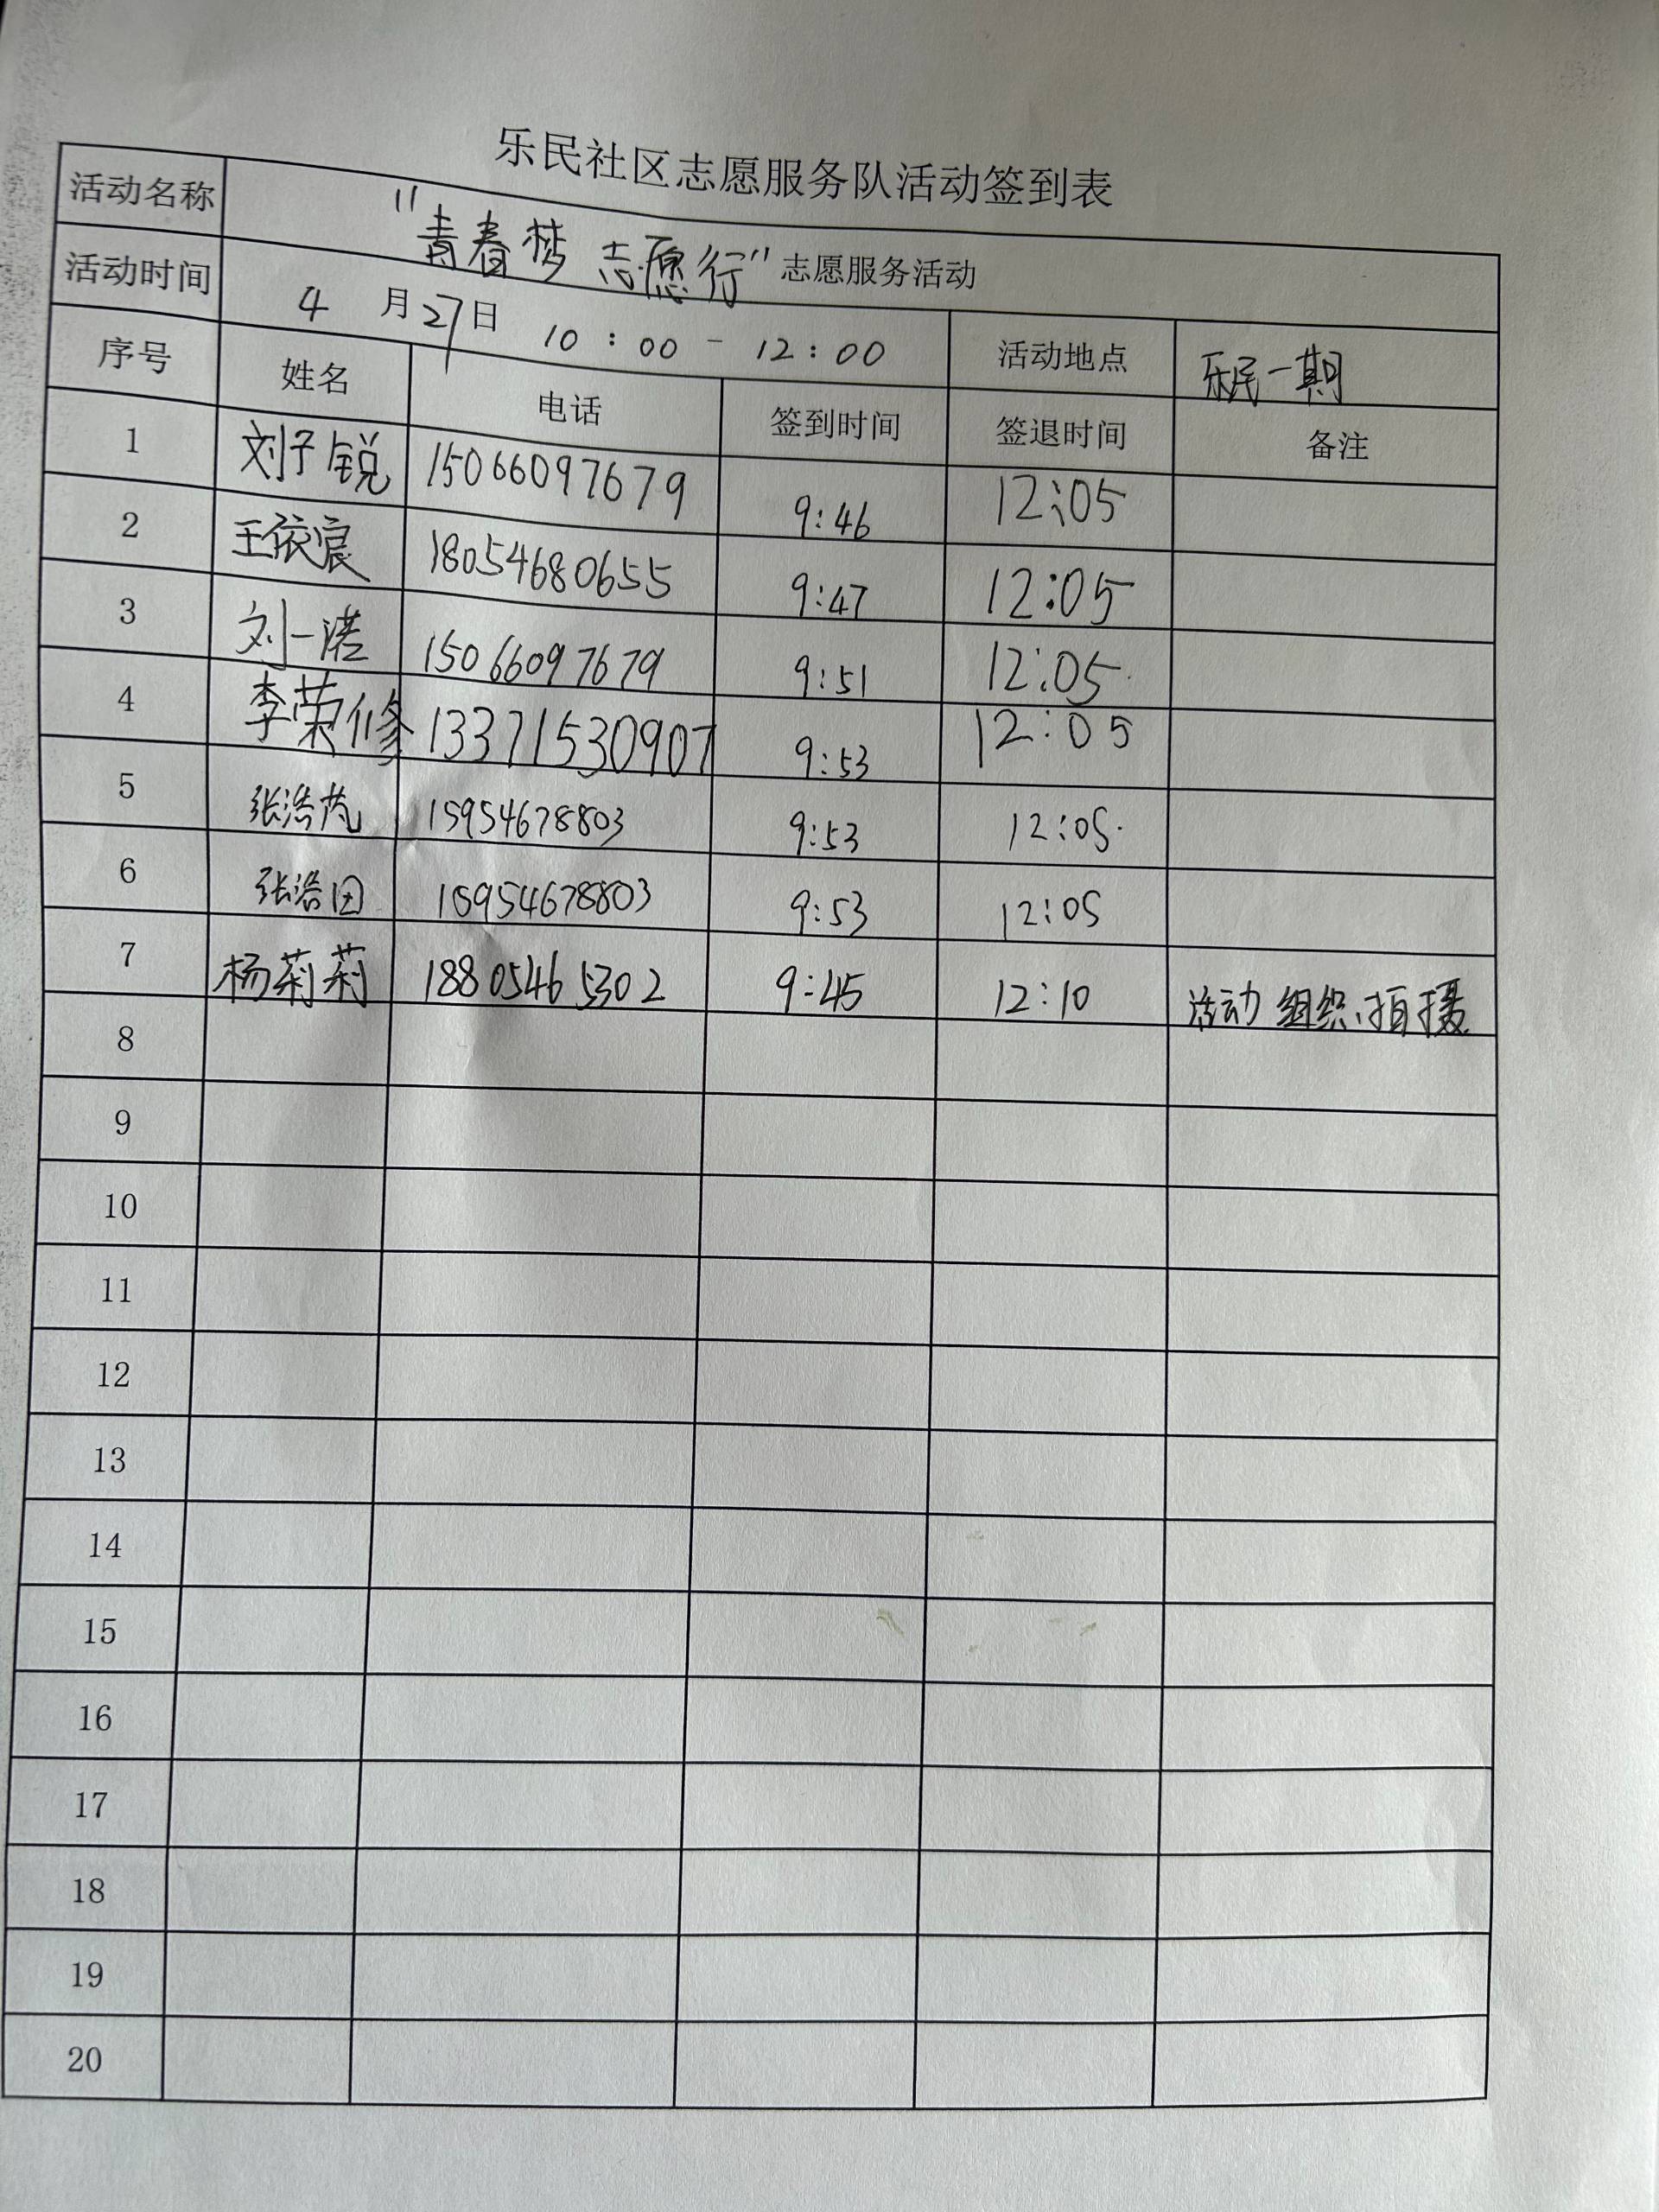 乐民社区志愿服务队活动签到表
活动名称 "青春梦 志愿行"志愿服务活动
活动时间 4月27日 10:00-12:00 活动地点 乐民一期
序号 姓名 电话 签到时间 签退时间 备注
1 刘子锐 15066097679 9:46 12:05
2 王依宸 18054680655 9:47 12:05
3 刘一诺 15066097679 9:51 12:05
4 李荣修 13371530907 9:53 12:05
5 张浩 15954678803 9:53 12:05
6 张浩田 15954678803 9:53 12:05
7 杨莉莉 18805465302 9:45 12:10 活动组织、拍摄
8
9
10
11
12
13
14
15
16
17
18
19
20